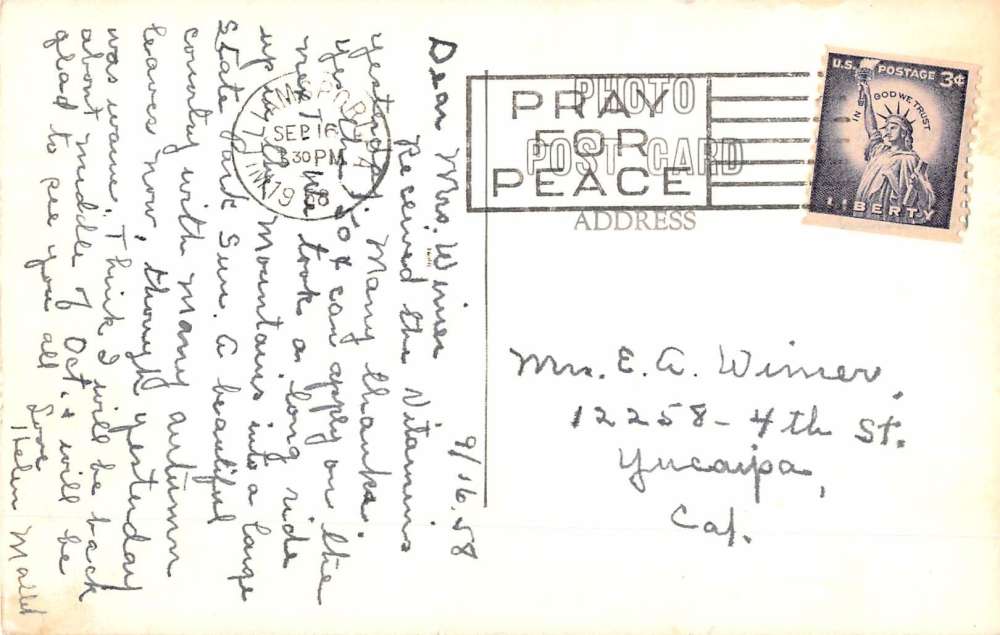 9/16.58
Dear Mrs. Wimer
Received the vitamins
yesterday. Many thanks.
yes the 50¢ can apply on the
next. We took a long ride
up in the mountains into a large
State park Sun. A beautiful
country with many autumn
leaves now, though yesterday
was warm. Think I will be back
about middle of Oct. & will be
glad to see you all
Love
Helen Mallet
SEP 16
30 PM
19
PRAY
FOR
PEACE
PHOTO
POST CARD
ADDRESS
U.S. POSTAGE 3¢
IN GOD WE TRUST
LIBERTY
Mrs. E. A. Wimer,
12258-4th St.
Yucaipa,
Cal.